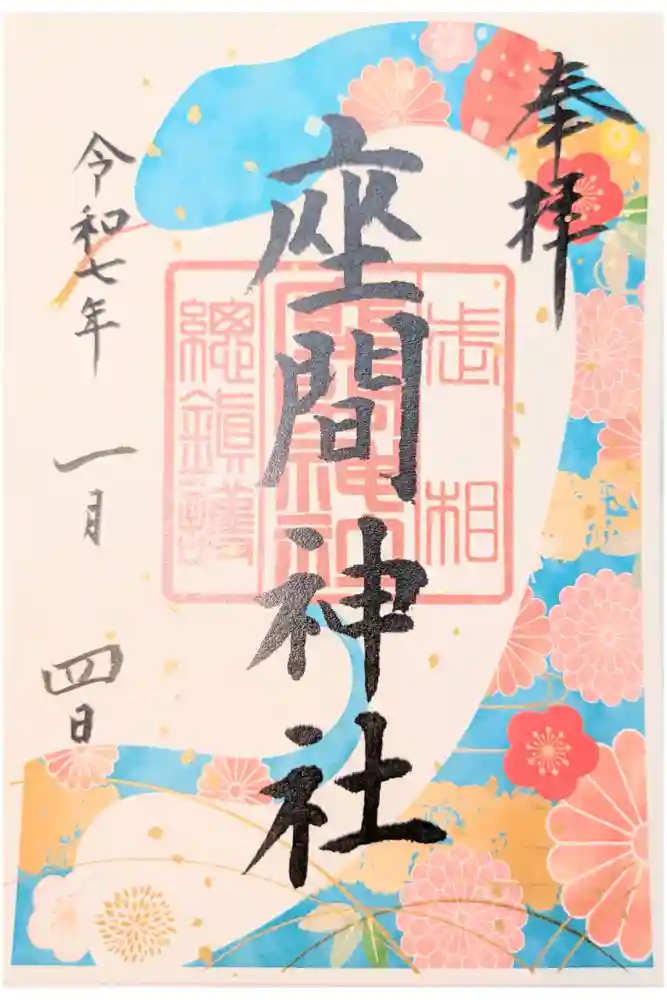 奉拝
座間神社
相武
座間神社
總鎮護
令和七年
一月
四日